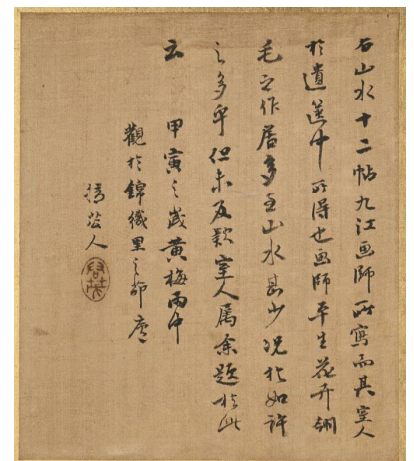 右山水十二帖九江画師所寫而其室人
於遺篋中所得也画師平生花卉翎
毛之作居多至山水甚少况於如許
之多乎但未及款室人属余題於此
云
甲寅之歳黄梅雨中
觀於錦織里之節庵
清谷人